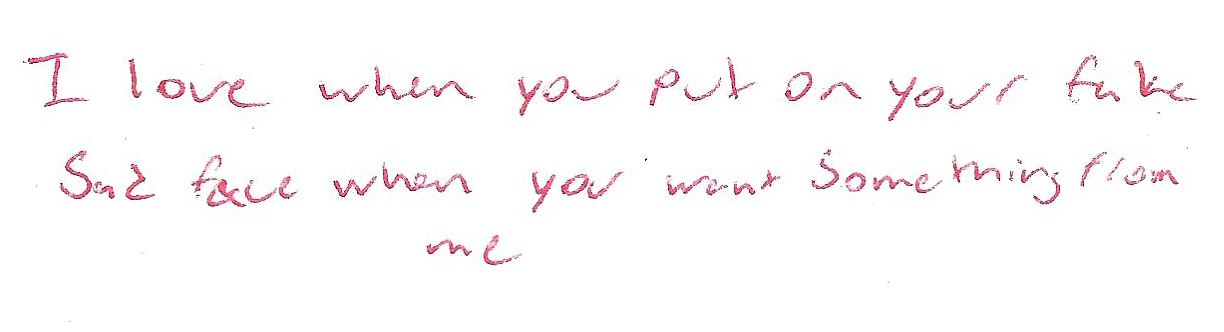 I love when you put on your fake
Sad face when you want Something from
me